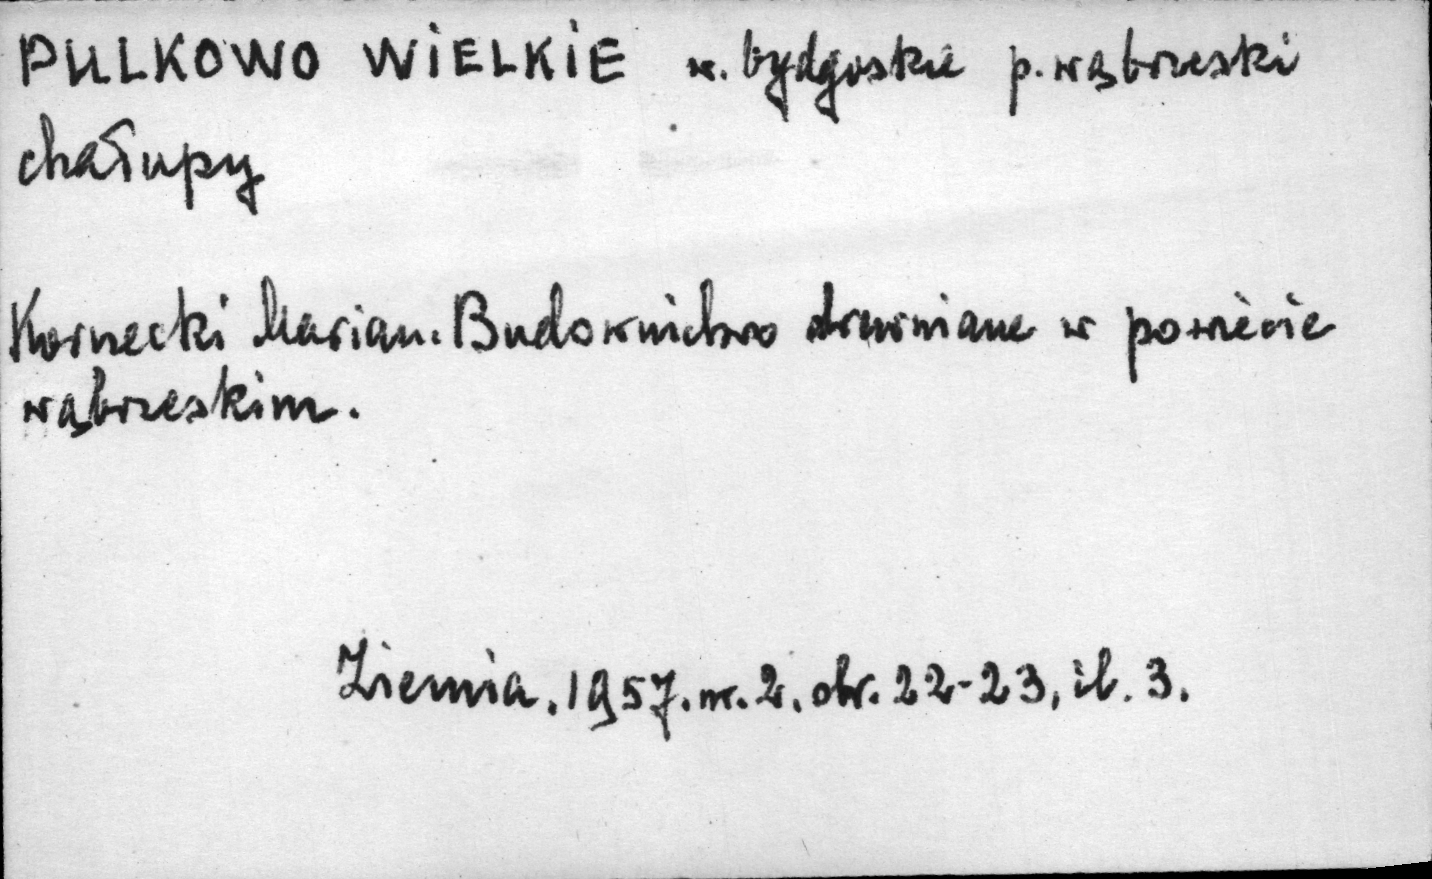 PULKOWO WIELKIE w. bydgoskie p. wąbrzeski
chałupy
Kornecki Marian. Budownictwo drewniane w powiecie
wąbrzeskim.
Ziemia. 1957. nr. 2. str. 22-23, il. 3.